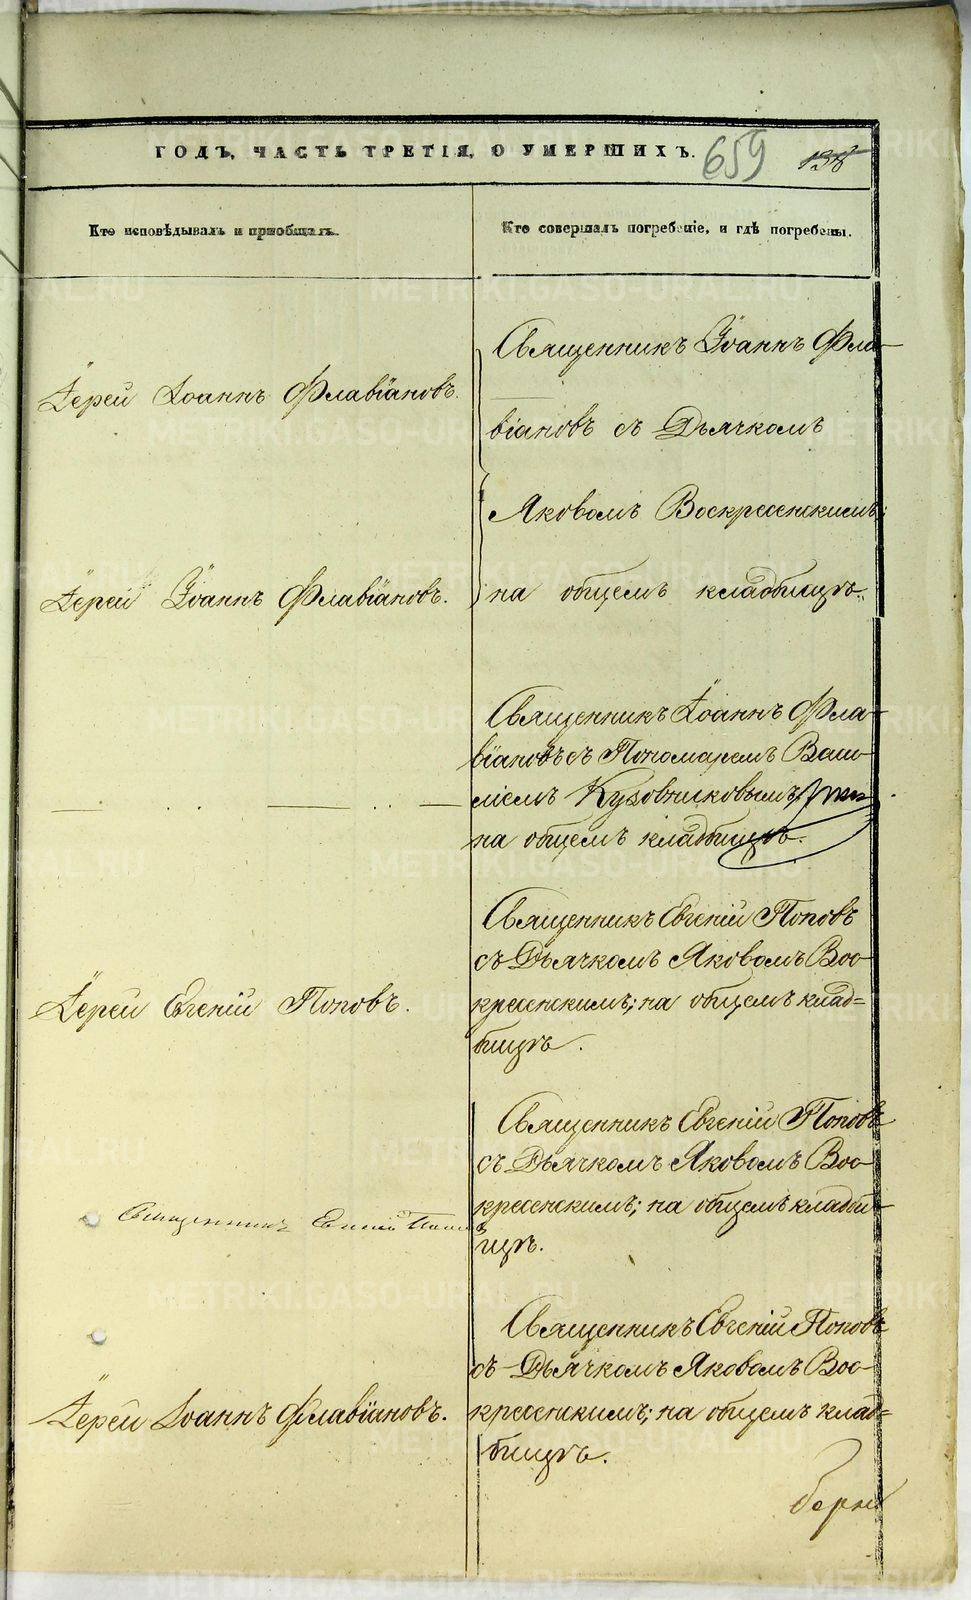 ГОДЪ, ЧАСТЬ ТРЕТІЯ, О УМЕРШИХЪ.
659
138
Кто исповѣдывалъ и пріобщалъ.
Кто совершалъ погребеніе, и гдѣ погребены.
Іерей Іоаннъ Флавіановъ.
Священникъ Іоаннъ Фла-
віановъ съ Дьячкомъ
Яковомъ Воскресенскимъ;
на общемъ кладбищѣ.
Іерей Іоаннъ Флавіановъ.
Священникъ Іоаннъ Фла-
віановъ съ Пономаремъ Васи-
ліемъ Кузовниковымъ
на общемъ кладбищѣ.
Іерей Евгеній Поповъ.
Священникъ Евгеній Поповъ
съ Дьячкомъ Яковомъ Вос-
кресенскимъ; на общемъ клад-
бищѣ.
Священникъ Евгеній
Священникъ Евгеній Поповъ
съ Дьячкомъ Яковомъ Вос-
кресенскимъ; на общемъ кладби-
щѣ.
Іерей Іоаннъ Флавіановъ.
Священникъ Евгеній Поповъ
съ Дьячкомъ Яковомъ Вос-
кресенскимъ; на общемъ клад-
бищѣ.
METRIKI.GASO-URAL.RU